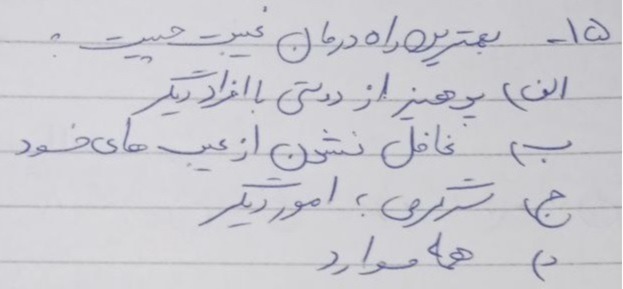 ۱۵- بهترین راه درمان غیبت چیست :
الف) پرهیز از دوستی با افراد دیگر
ب) غافل نشدن از عیب های خود
ج) سرگرمی با امور دیگر
د) همه موارد